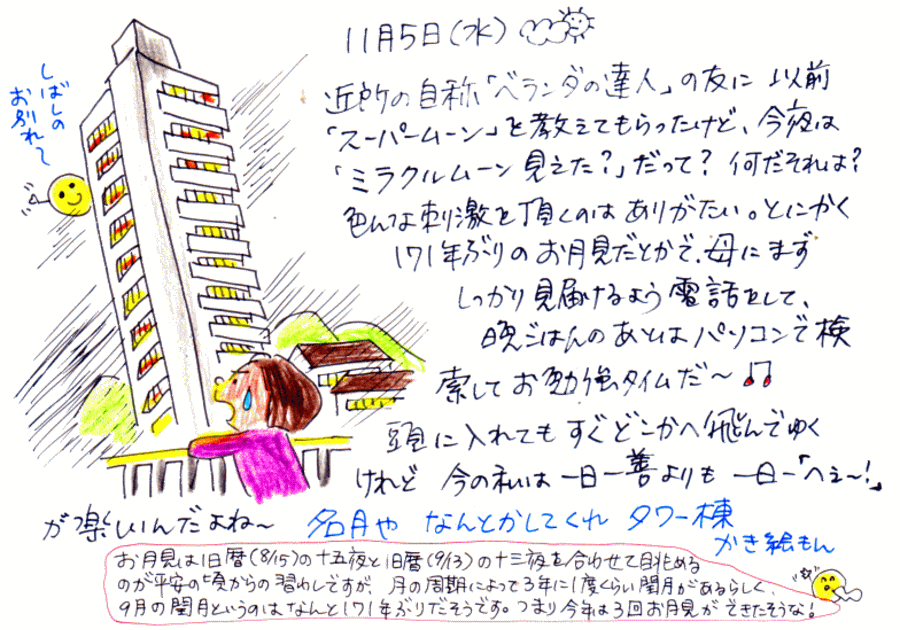 11月5日(水)
しばしの
お別れ〜
近所の自称「ベランダの達人」の友に 以前
「スーパームーン」を教えてもらったけど、今夜は
「ミラクルムーン 見えた?」だって? 何だそれは?
色んな刺激を頂くのは ありがたい。とにかく
171年ぶりのお月見だとかで、母にまず
しっかり見届けるよう電話をして、
晩ごはんのあとはパソコンで検
索してお勉強タイムだ〜♫
頭に入れても すぐどこかへ飛んでゆく
けれど 今の私は 一日一善よりも 一日一「へぇ〜!」
が楽しいんだよね〜
名月や なんとかしてくれ タワー棟
かき絵もん
お月見は旧暦(8/15)の十五夜と旧暦(9/13)の十三夜を合わせて眺める
のが平安の頃からの習わしですが、月の周期によって3年に1度くらい閏月があるらしく、
9月の閏月というのはなんと171年ぶりだそうです。つまり今年は3回お月見ができたそうな!